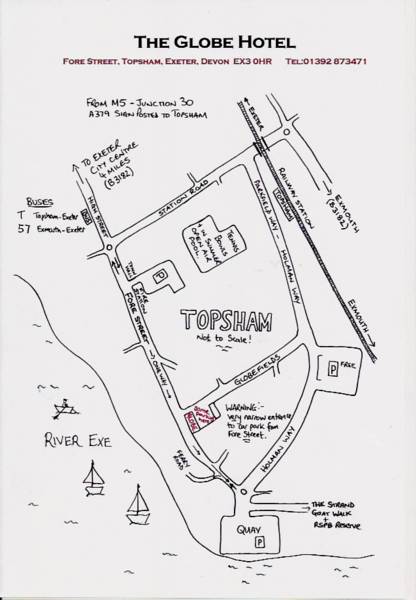 THE GLOBE HOTEL
FORE STREET, TOPSHAM, EXETER, DEVON EX3 0HR TEL:01392 873471
FROM M5 - JUNCTION 30
A379 SIGN POSTED TO TOPSHAM
EXETER
TO EXETER
CITY CENTRE
4 MILES
(B3182)
BUSES
T Topsham-Exeter
57 Exmouth-Exeter
BUS
HIGH STREET
STATION ROAD
RAILWAY STATION
TOPSHAM
EXMOUTH
(B3182)
HOLMAN WAY
EXMOUTH
TENNIS
BOWLS
OPEN AIR
POOL
P
FORE STREET
ONE WAY
TOPSHAM
Not to Scale!
GLOBEFIELDS
P
FREE
GLOBE
WARNING:-
very narrow entrance
to car park from
Fore Street.
HOLMAN WAY
RIVER EXE
FERRY
ROAD
THE STRAND
GOAT WALK
+
RSPB RESERVE
QUAY
P